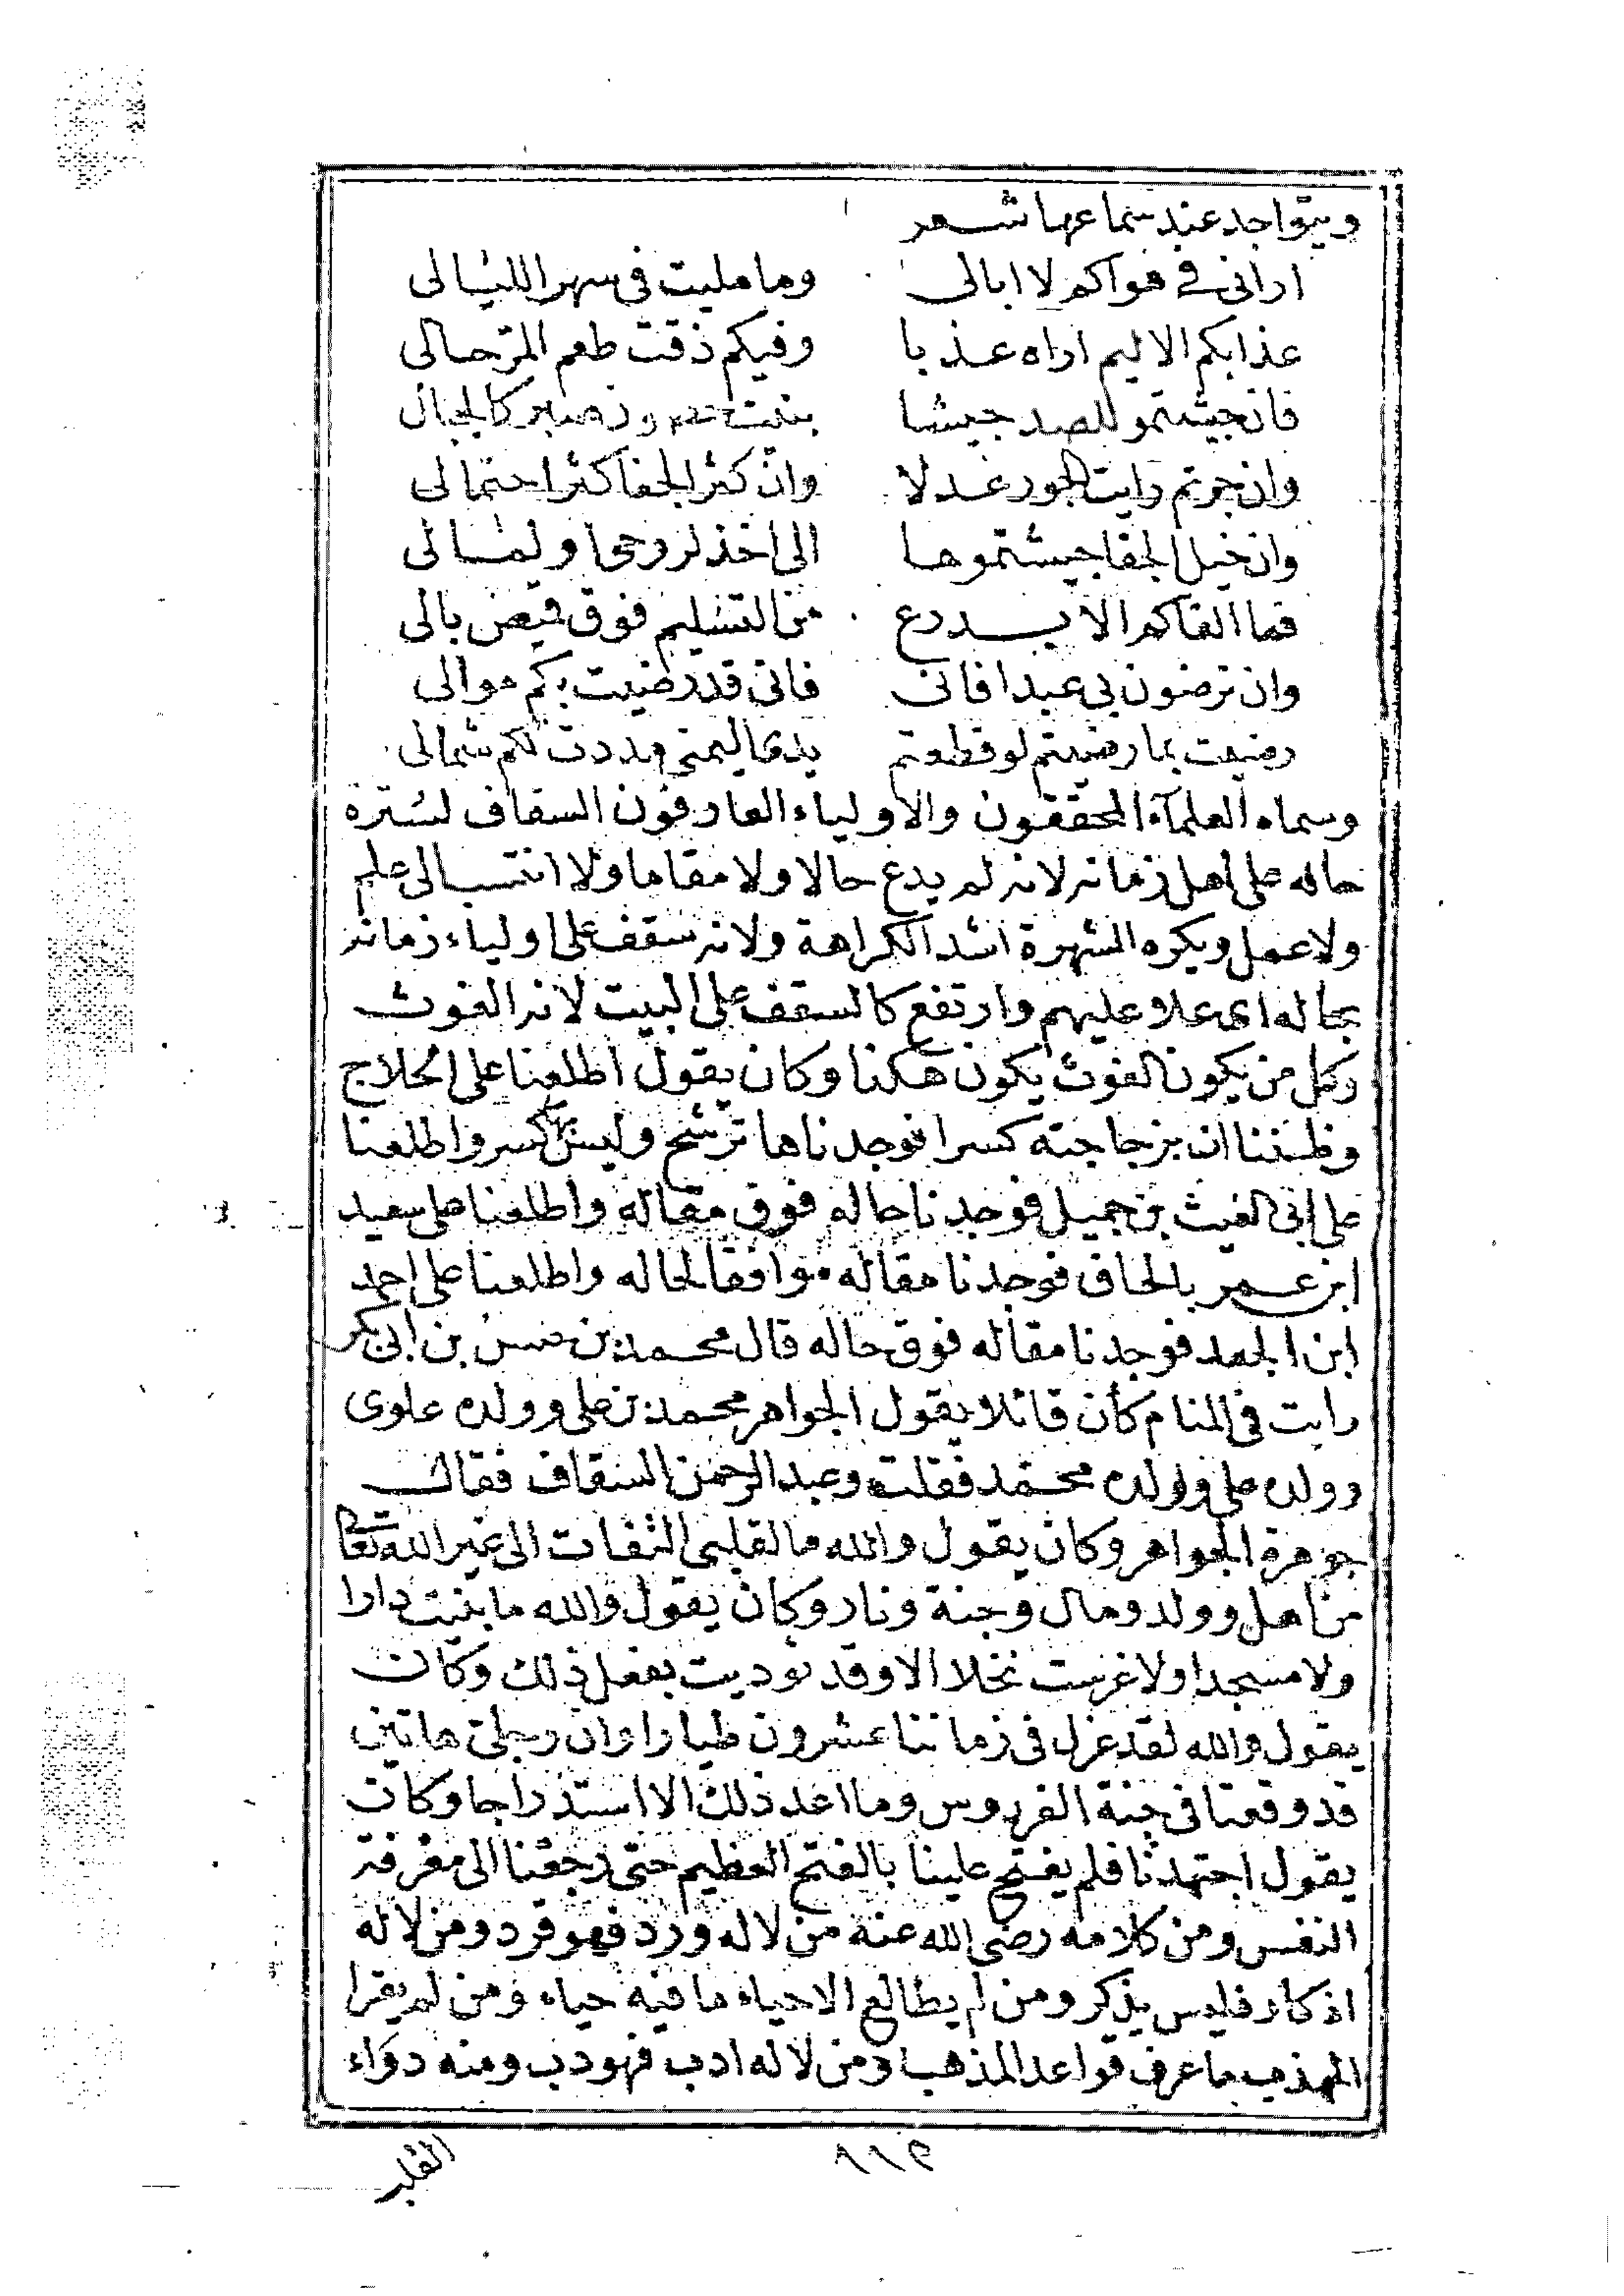 ويتواجد عند سماعها شعر
اراني في هواكم لا ابالي وما مليت في سهر الليالي
عذابكم الاليم اراه عذبا وفيكم ذقت طعم المر حالي
فان جيشتمو للصد جيشا بنيت صبر كالجبال
وان جرتم رايت الجور عدلا وان كثر الجفا كثر احتمالي
وان خيل الجفا جيشتموها الى اخذ لروحي او لمالي
فما القاكم الا بدرع من التسليم فوق قميص بالي
وان ترضون بي عبدا فاني فاني قد رضيت بكم موالي
رضيت بما رضيتم لو قطعتم يدي اليمنى مددت لكم شمالي
وسماه العلمآء المحققون والاولياء العارفون السقاف لستره
حاله على اهل زمانه لانه لم يدع حالا ولا مقاما ولا انتسب الى علم
ولا عمل ويكره الشهرة اشد الكراهة ولانه سقف على اولياء زمانه
بحاله اي علا عليهم وارتفع كالسقف على البيت لانه الغوث
وكل من يكون الغوث يكون هكذا وكان يقول اطلعنا على الحلاج
وظننا ان بزجاجته كسرا فوجدناها ترشح وليس بها كسر واطلعنا
على ابي الغيث بن جميل فوجدنا حاله فوق مقاله واطلعنا على سعيد
ابن عمر بالحاف فوجدنا مقاله موافقا لحاله واطلعنا على احمد
ابن ابي الجعد فوجدنا مقاله فوق حاله قال محمد بن حسن بن ابي بكر
رايت في المنام كأن قائلا يقول الجواهر محمد بن علي وولده علوي
وولده علي وولده محمد فقلت وعبد الرحمن السقاف فقال
جوهرة الجواهر وكان يقول والله ما لقلبي التفات الى غير الله تعالى
من اهل وولد ومال وجنة ونار وكان يقول والله ما بنيت دارا
ولا مسجدا ولا غرست نخلا الا وقد نوديت بفعل ذلك وكان
يقول والله لقد عزل في زماننا عشرون طيارا وان رجلي هاتين
قد وقعتا في جنة الفردوس وما اعد ذلك الا استدراجا وكان
يقول اجتهدنا فلم يفتح علينا بالفتح العظيم حتى رجعنا الى معرفة
النفس ومن كلامه رضي الله عنه من لاله ورد فهو قرد ومن لاله
اذكار فليس بذكر ومن لم يطالع الاحياء ما فيه حياء ومن لم يقرا
المهذب ما عرف قواعد المذهب ومن لاله ادب فهو دب ومنه دواء
القلب